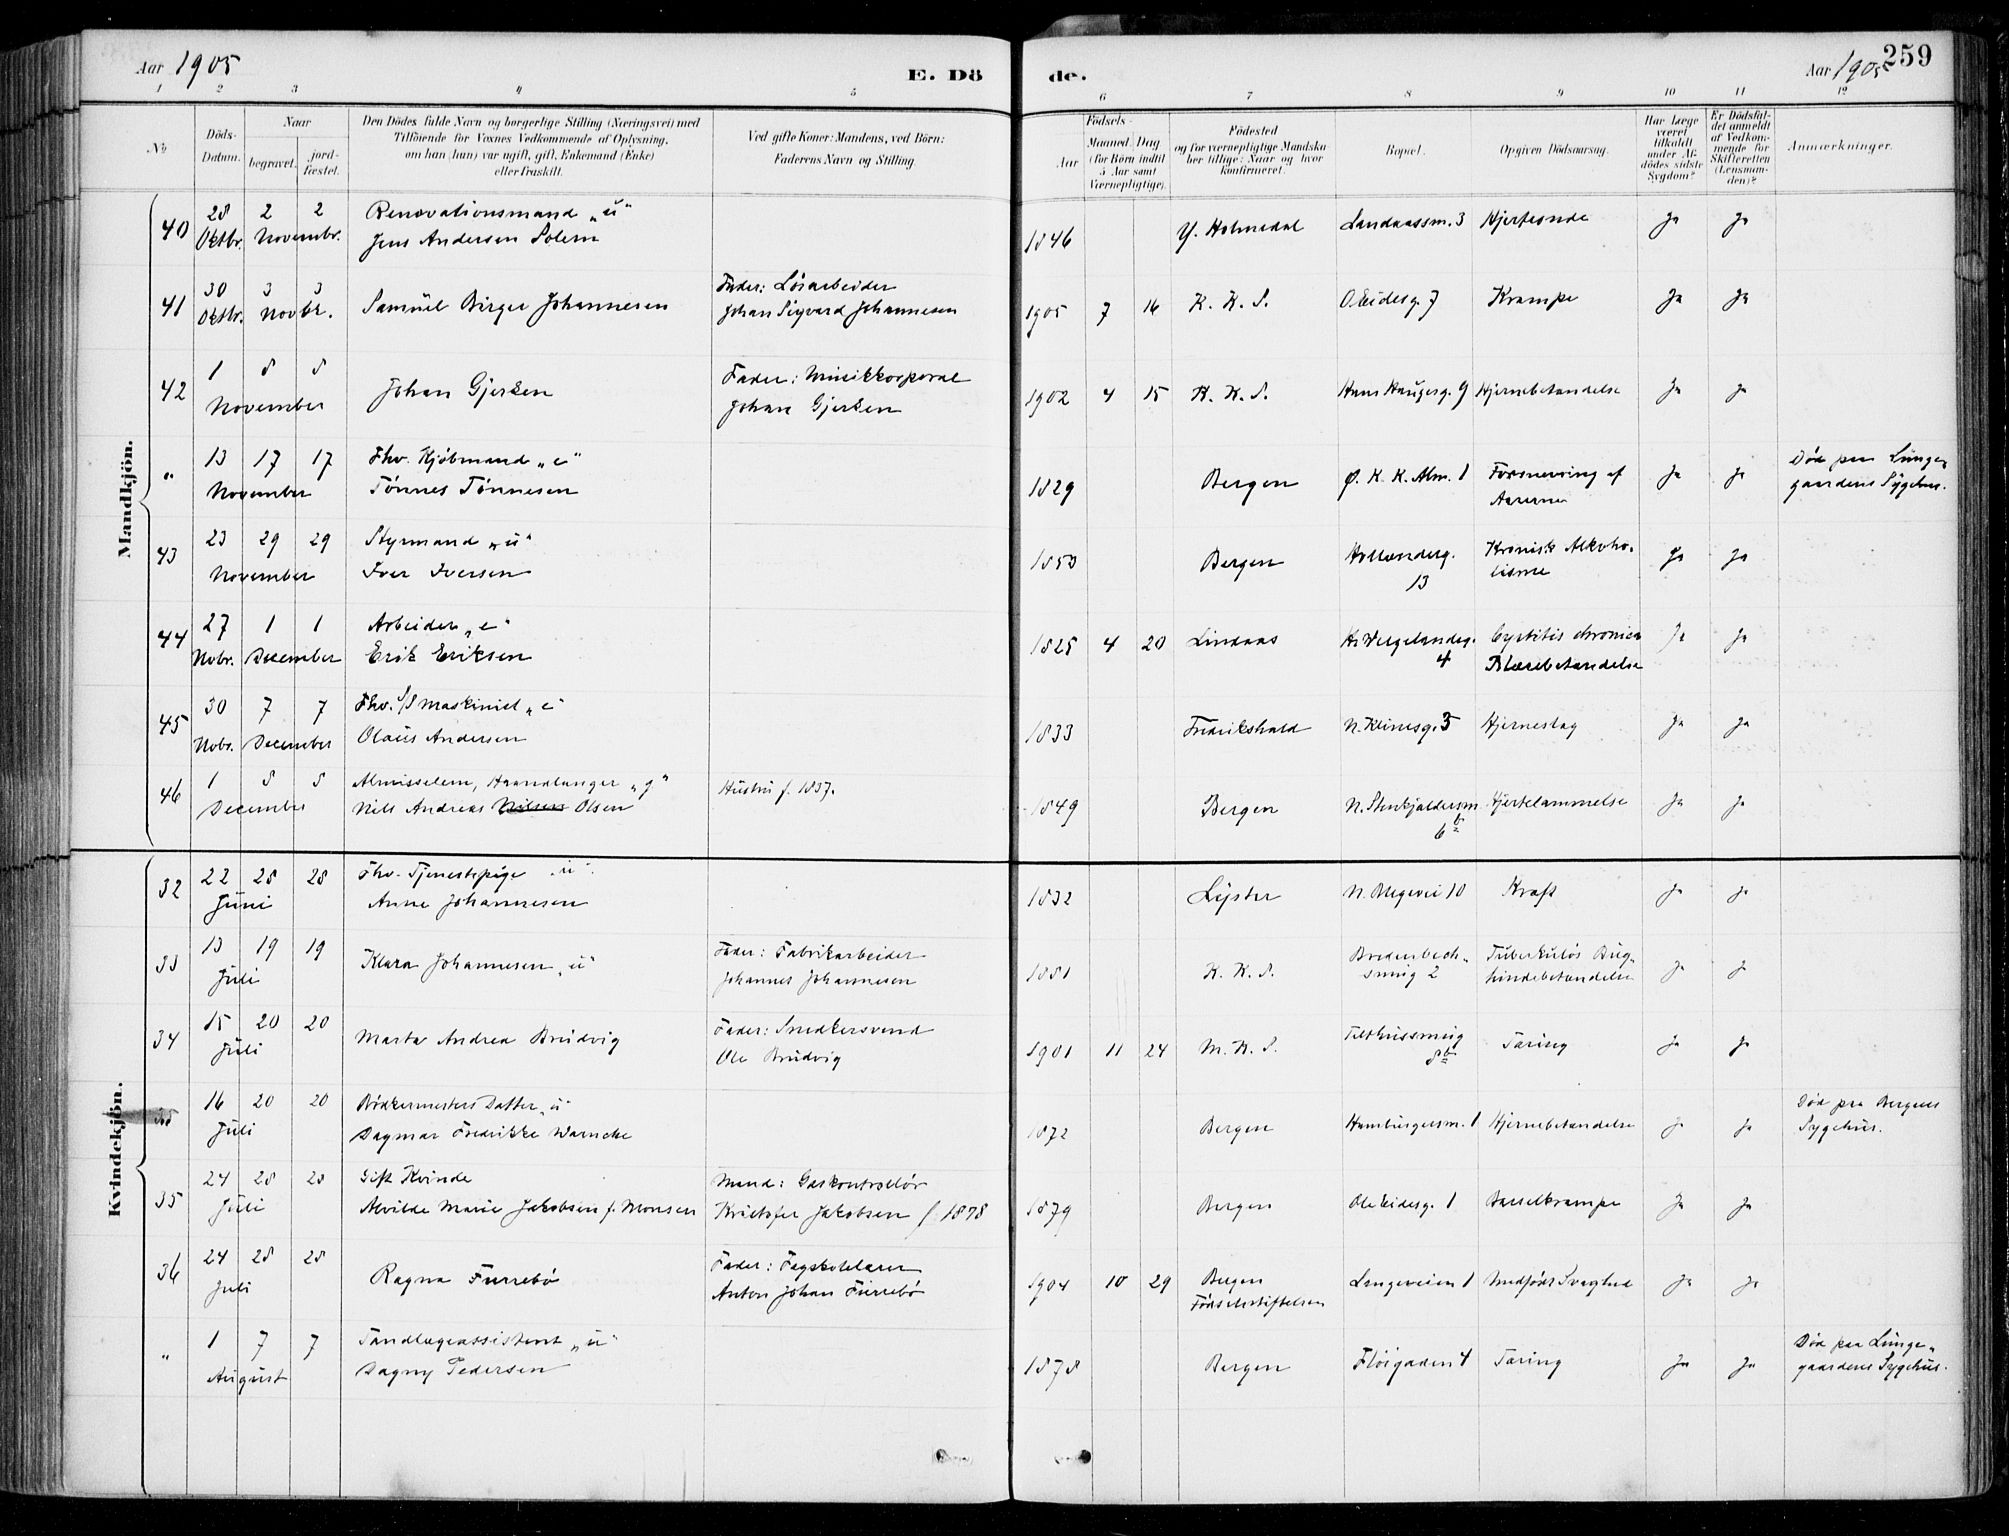 Aar 1905
E. Dö
de.
Aar 1905
259
1 2 3 4 5 6 7 8 9 10 11 12
No
Döds-Datum.
Naar
begravet.
jord-fæstet.
Den Dödes fulde Navn og borgerlige Stilling (Næringsvei) med
Tilföiende for Voxnes Vedkommende af Oplysning,
om han (hun) var ugift, gift, Enkemand (Enke)
eller fraskilt.
Ved gifte Koner: Mandens, ved Börn:
Faderens Navn og Stilling.
Födsels-
Aar
Maaned. Dag
(for Börn indtil
5 Aar samt
Værnepligtige).
Födested
og for værnepligtige Mandska-
ber tillige: Naar og hvor
konfirmeret.
Bopæl.
Opgiven Dödsaarsag.
Har Læge
været
tilkaldt
under Af-
dödes sidste
Sygdom?
Er Dödsfal-
det anmeldt
af Vedkom-
mende for
Skifteretten
(Lensman-
den)?
Anmærkninger.
Mandkjön.
40 28 Oktbr. 2 2 Novembr.
Renovationsmand „u“
Jens Andersen Solem
1846 Y. Holmedal Landaassm. 3 Hjerteonde Ja Ja
41 30 Oktbr. 3 3 Novbr.
Samuel Birger Johannesen
Fader: Løsarbeider
Johan Sigvard Johannesen
1905 7 16 K. K. S. O. Eidesg. 7 Krampe Ja Ja
42 1 8 8 November
Johan Gjersen
Fader: Musikkorporal
Johan Gjersen
1902 4 15 K. K. S. Hans Haugesg. 9 Hjernebetændelse Ja Ja
„ 13 17 17 November
Fhv. Kjøbmand „e“
Tønnes Tønnesen
1829 Bergen Ø. K. K. Alm. 1 Forsnevring af
Aarerne
Ja Ja
Død paa Lunge-
gaardens Sygehus.
43 23 29 29 November
Styrmand „u“
Iver Iversen
1853 Bergen Hollænderg.
13
Kronisk Alkoho-
lisme
Ja Ja
44 27 Nobr. 1 1 December
Arbeider „e“
Erik Eriksen
1825 4 20 Lindaas H. Wergelandsg.
4
Cystitis chronica
Blærebetændelse
Ja Ja
45 30 Nobr. 7 7 December
Fhv. S/S Maskinist „e“
Olaus Andersen
1833 Fredrikshald N. Kleivesg. 5 Hjerneslag Ja Ja
46 1 8 8 December
Almisselem, Haandlanger „g“
Nils Andreas Nilsen Olsen
Hustru f. 1837.
1849 Bergen N. Stenkjeldersm.
6 b
Hjertelammelse Ja Ja
Kvindekjön.
32 22 28 28 Juni
Fhv. Tjenestepige „u“
Anne Johannesen
1832 Lyster N. Blegevei 10 Kræft Ja Ja
33 13 19 19 Juli
Klara Johannesen „u“
Fader: Fabrikarbeider
Johannes Johannesen
1881 K. K. S. Bredenbech-
smug 2
Tuberkuløs Bug-
hindebetændelse
Ja Ja
34 15 20 20 Juli
Marta Andrea Brudvig
Fader: Snedkersvend
Ole Brudvig
1901 11 24 M. K. S. Tilthussmug
8 b
Tæring Ja Ja
16 20 20 Juli
Bødkermesters Datter „u“
Dagmar Fredrikke Warncke
1872 Bergen Hamburgersm. 1 Hjernebetændelse Ja Ja
Død paa Bergens
Sygehus.
35 24 28 28 Juli
Gift Kvinde
Alvilde Marie Jakobsen f. Monsen
Mand: Gaskontrollør
Kristofer Jakobsen f. 1878
1879 Bergen Ole Eidesg. 1 Barselkrampe Ja Ja
36 24 28 28 Juli
Ragna Furrebø
Fader: Fagskolelærer
Anton Johan Furrebø
1904 10 29 Bergen
Fødselsstiftelsen
Langeveien 1 Medfødt Svaghed Ja Ja
„ 1 7 7 August
Tandlægeassistent „u“
Dagny Pedersen
1878 Bergen Fløigaden 4 Tæring Ja Ja
Død paa Lunge-
gaardens Sygehus.